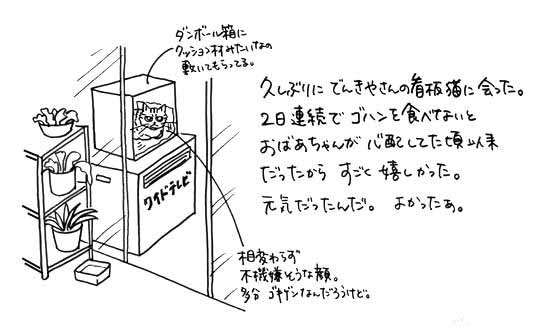 ダンボール箱に
クッション材みたいなの
敷いてもらってる。
久しぶりに でんきやさんの看板猫に会った。
2日連続で ゴハンを食べてないと
おばあちゃんが 心配してた頃以来
だったから すごく嬉しかった。
元気だったんだ。 よかったぁ。
ワイドテレビ
相変わらず
不機嫌そうな顔。
多分 ゴキゲンなんだろうけど。